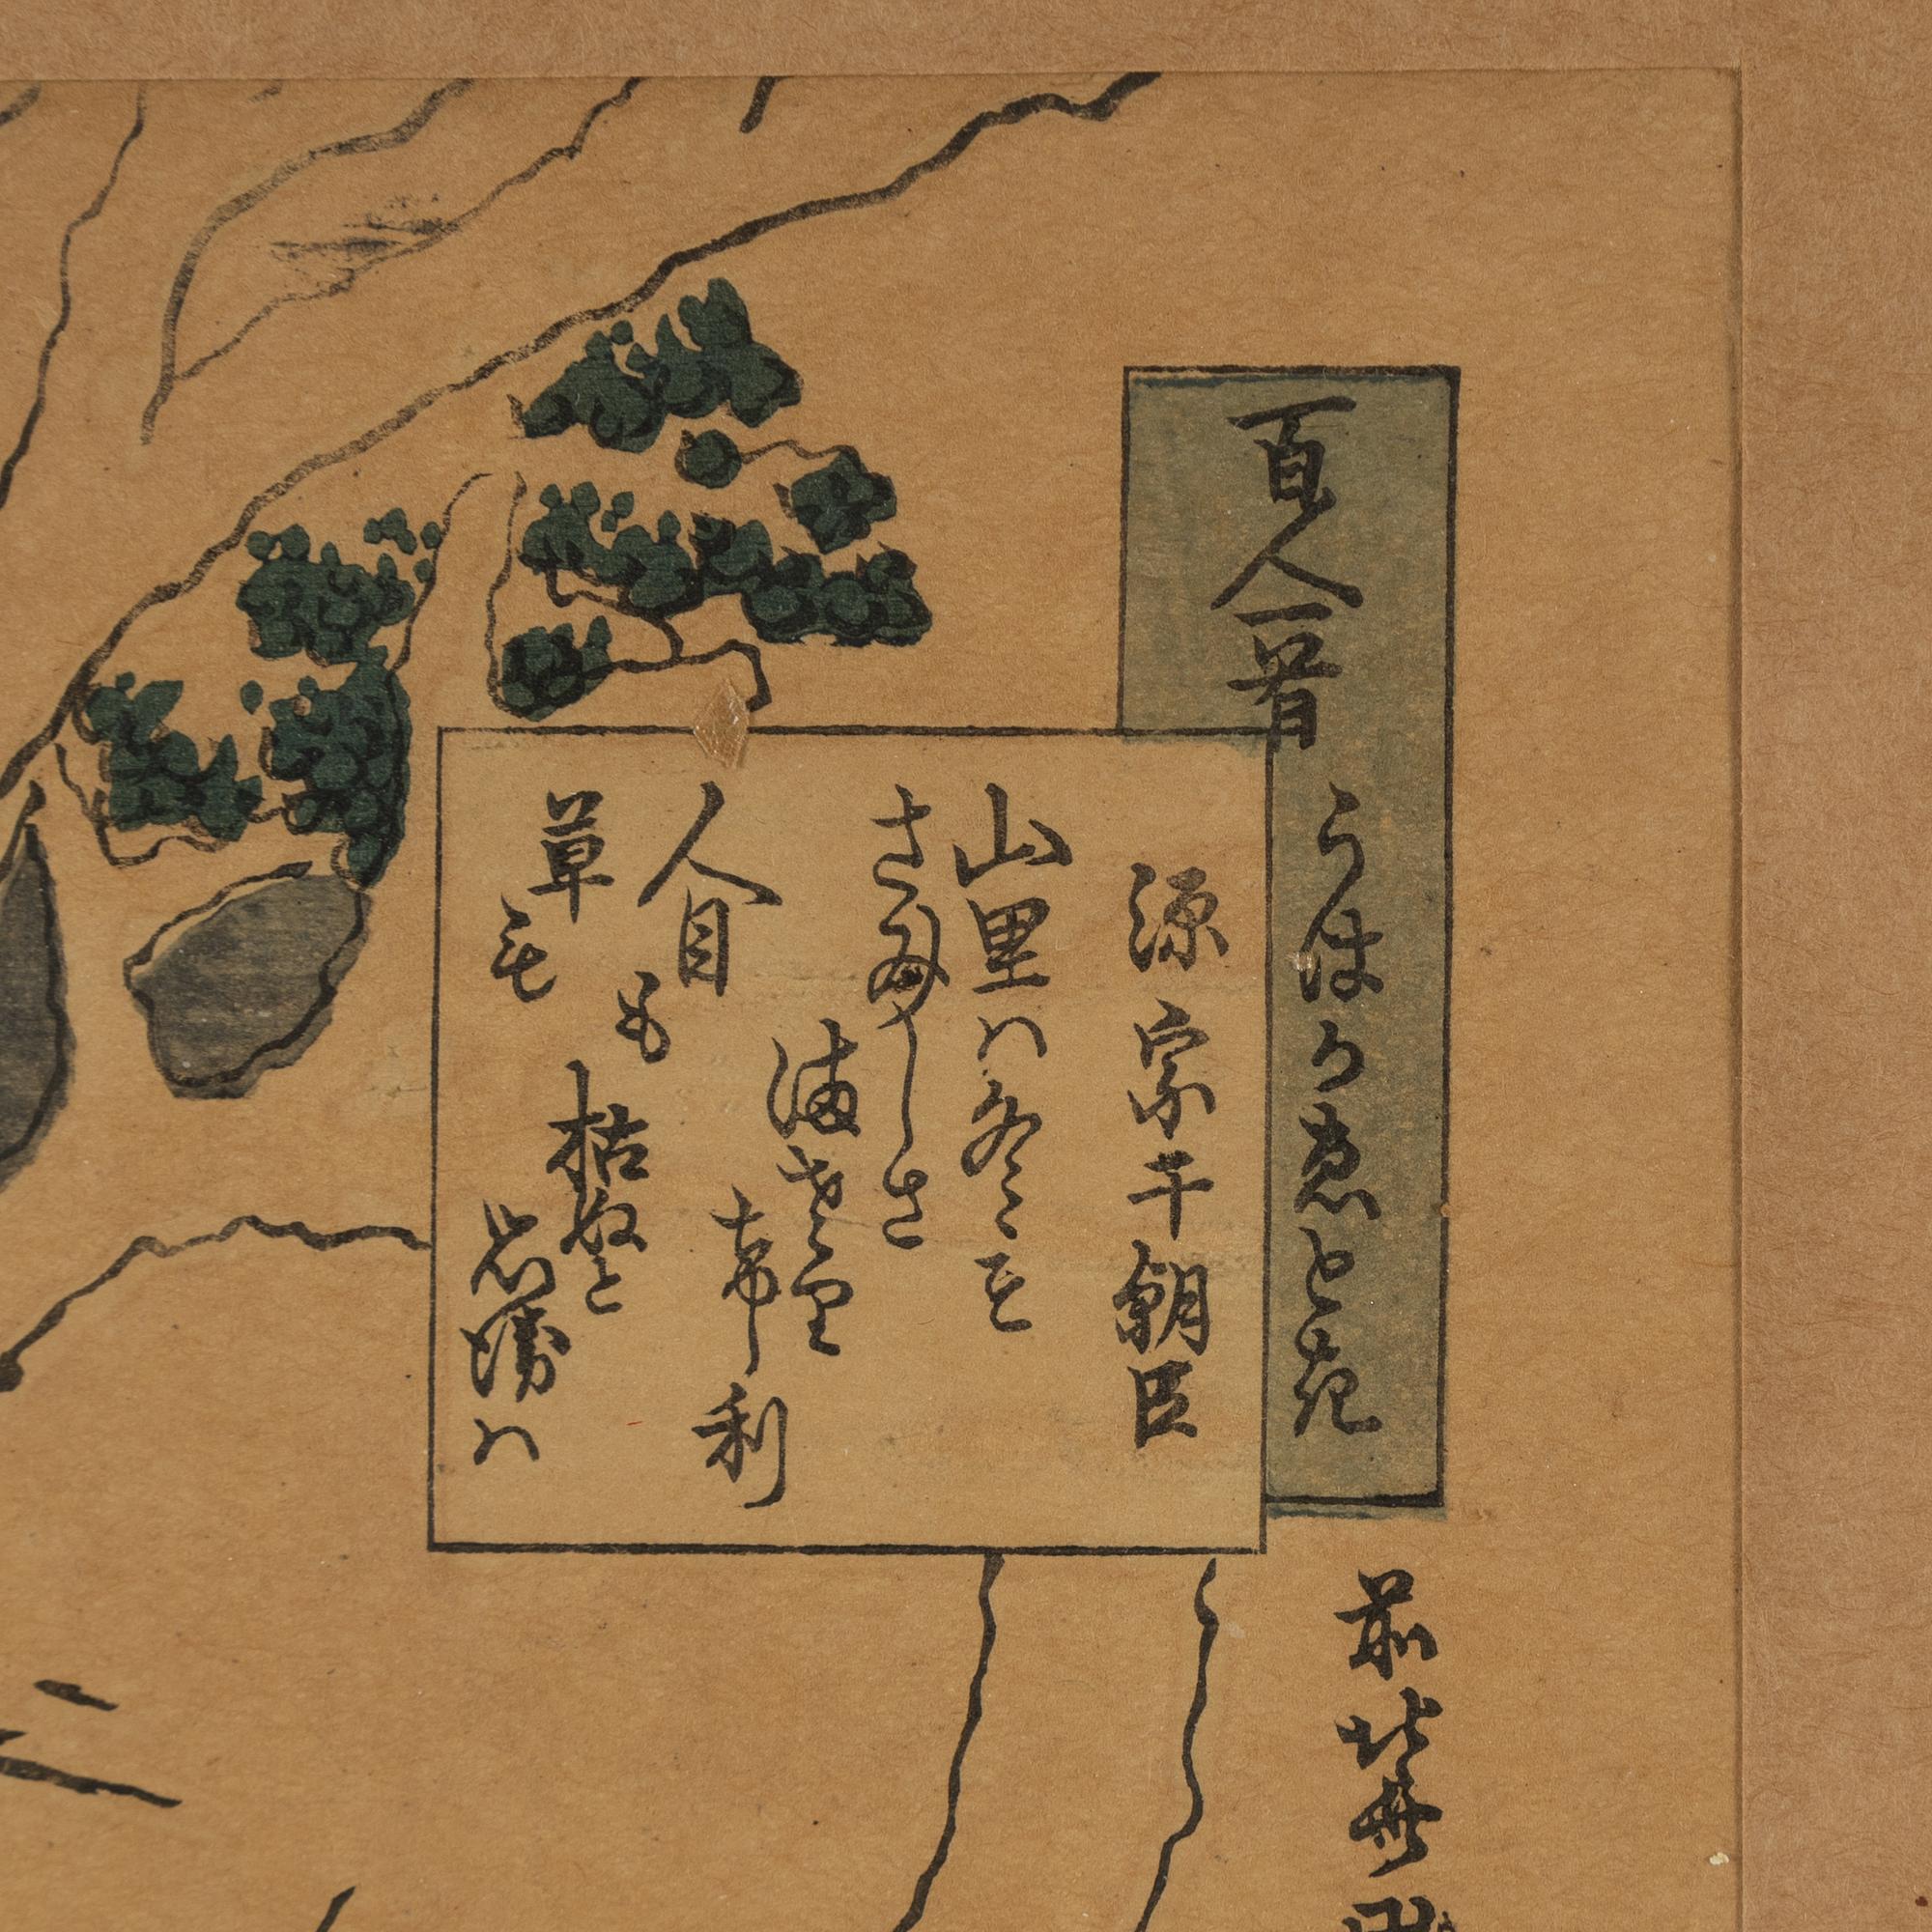 百人一首
うはかゑとき
源宗于朝臣
山里ハ冬そ
さひしさ
満さり
希利
人目も
草も
枯ぬと
思へハ
前北斎